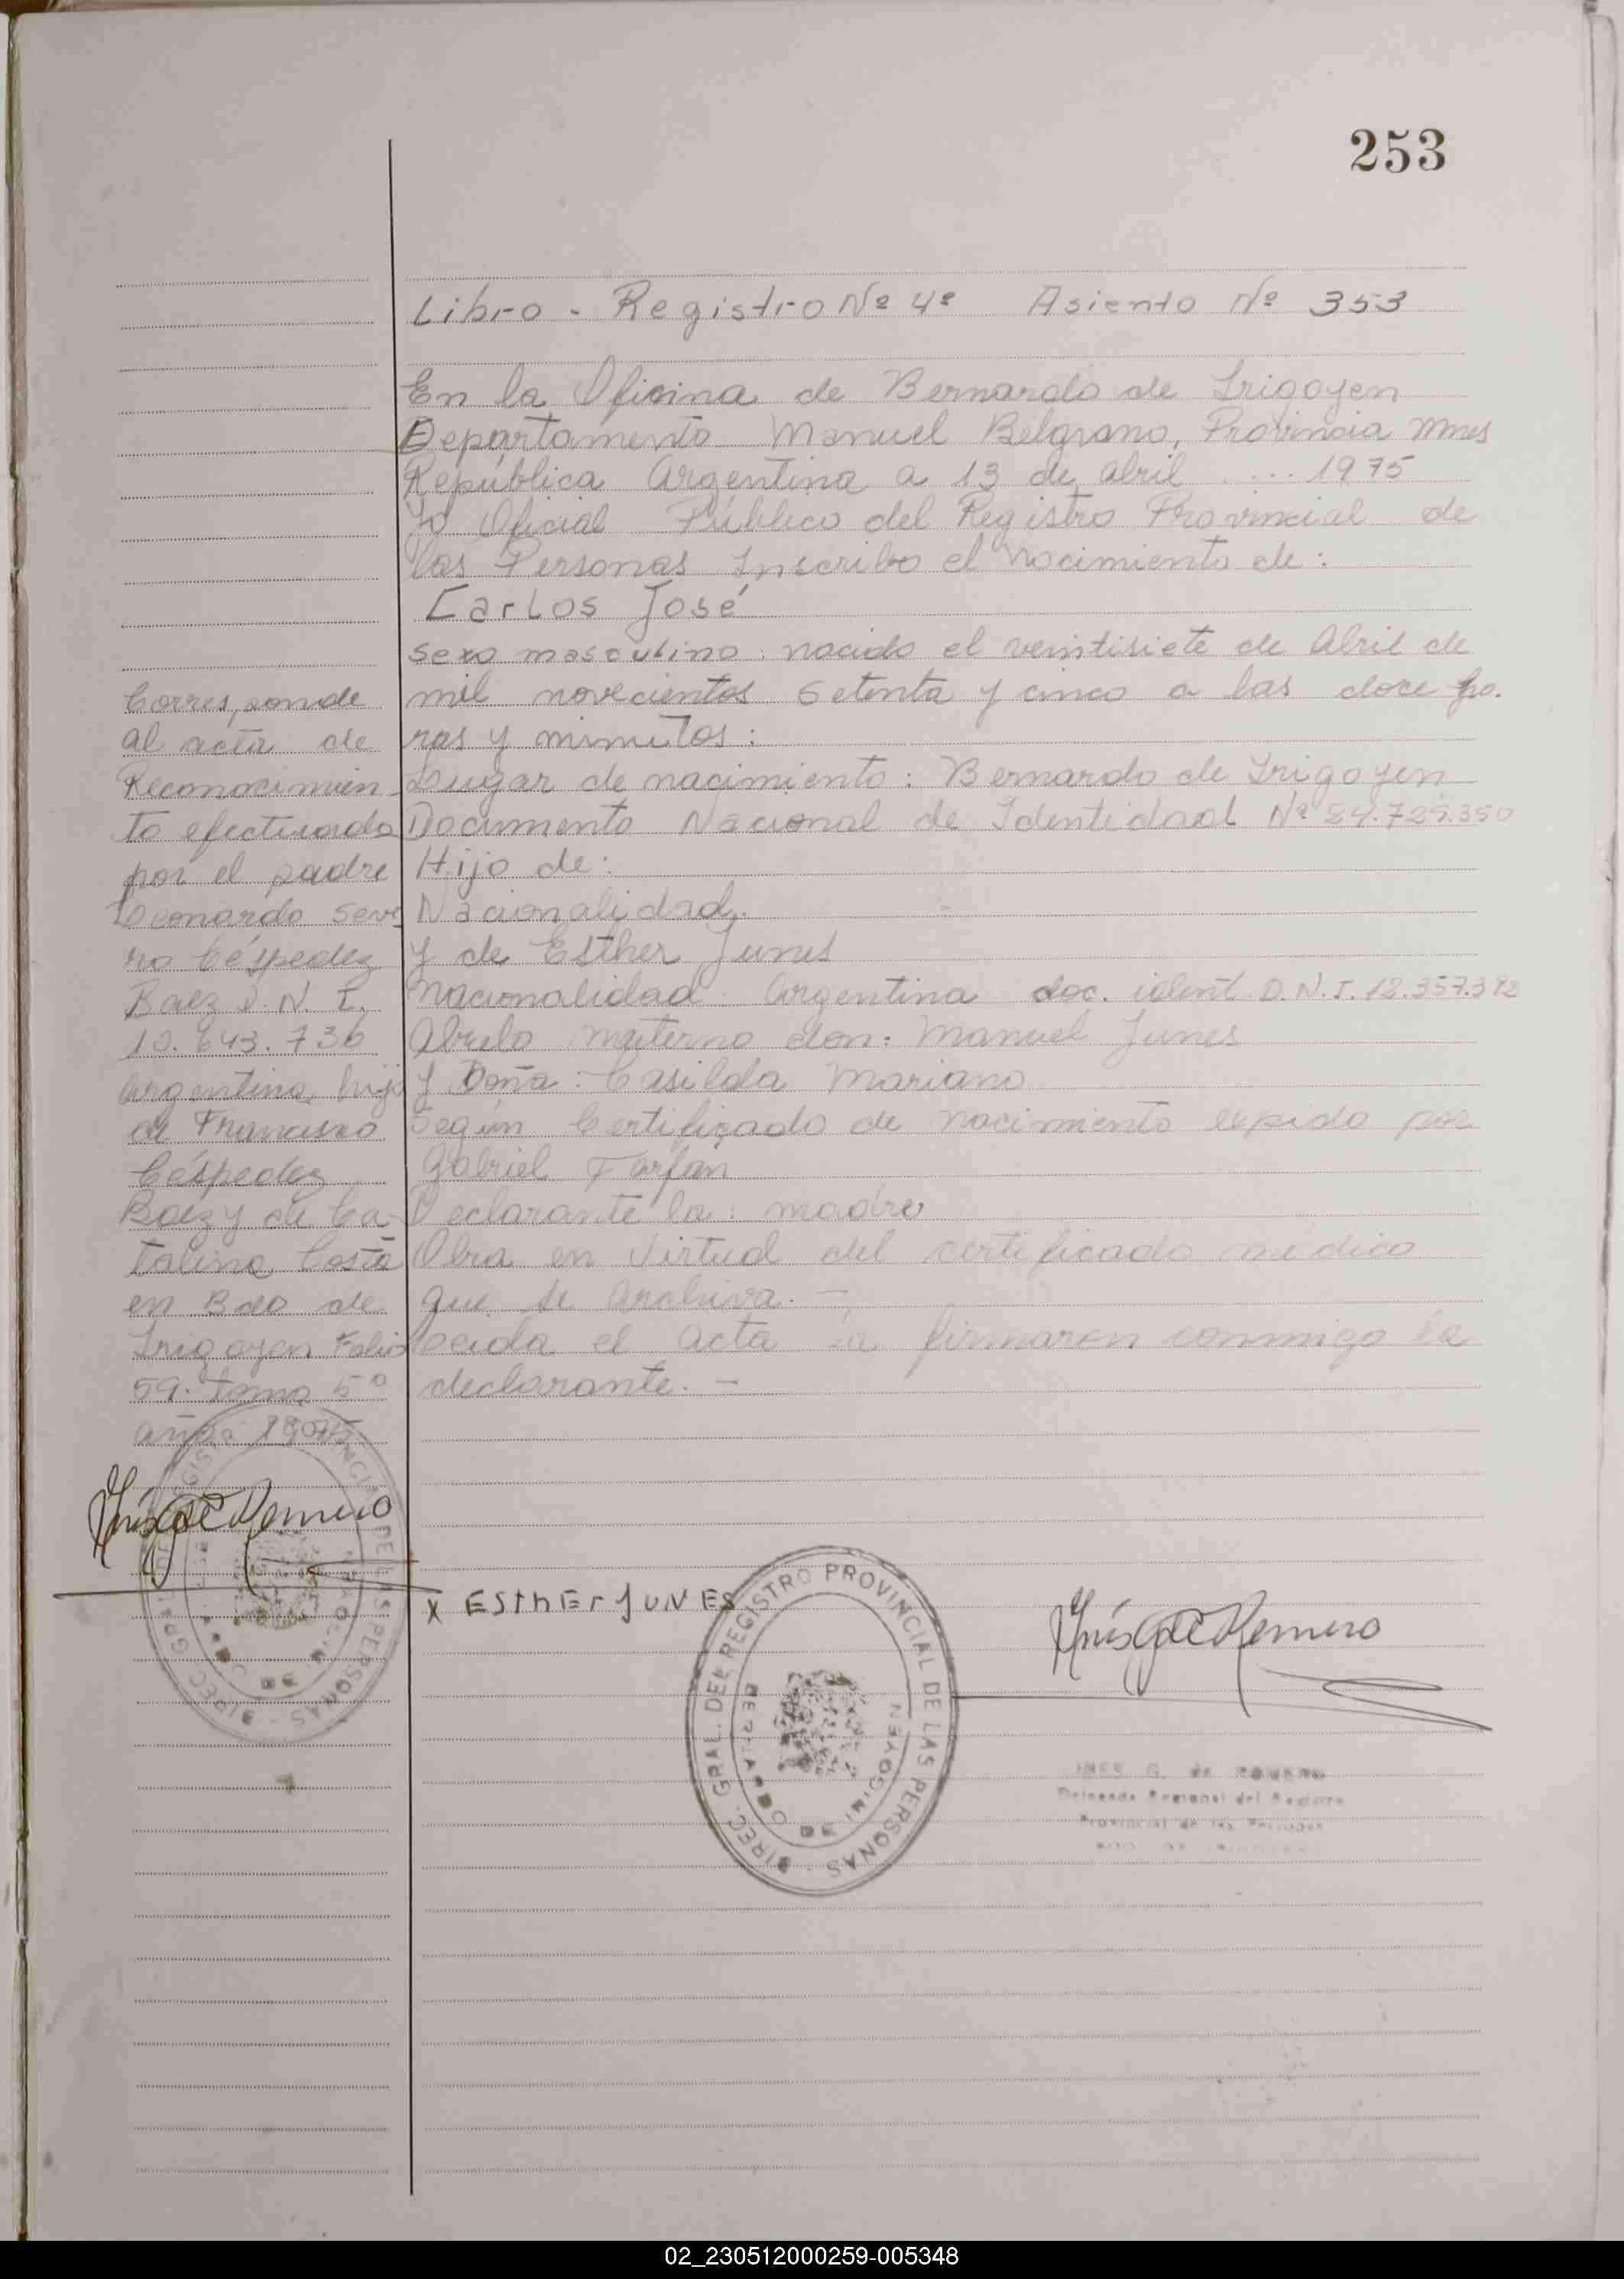 253
Libro - Registro Nº 4º Asiento Nº 353
En la Oficina de Bernardo de Irigoyen
Departamento Manuel Belgrano, Provincia Mnes
República Argentina a 13 de abril .... 1975
Yo Oficial Público del Registro Provincial de
las Personas Inscribo el nacimiento de:
Carlos José
sexo masculino: nacido el veintisiete de Abril de
mil novecientos setenta y cinco a las doce ho.
ras y minutos:
Lugar de nacimiento: Bernardo de Irigoyen
Documento Nacional de Identidad Nº 24.725.350
Hijo de:
Nacionalidad.
y de Esther Junes
nacionalidad Argentina doc. ident D.N.I. 12.357.312
Abuelo materno don: Manuel Junes
y Doña: Casilda Mariano
Según Certificado de nacimiento expido por
Gabriel Farfan
Declarante la: madre
Obra en Virtud del certificado médico
que se Archiva. -
Leida el acta la firmaren conmigo la
declarante. -
Corresponde
al acta de
Reconocimien-
to efectuada
por el padre
Leonardo Seve
ro Céspedez
Baez D.N.I.
10.643.736
Argentino hijo
de Francisco
Céspedez
Baez y de Ca-
talina Costa
en Bdo de
Irigoyen Folio
59. Tomo 5º
año
Inés G de Romero
X EStHEr JUNES
DIREC. GRAL. DEL REGISTRO PROVINCIAL DE LAS PERSONAS
BERNARDO DE IRIGOYEN
Inés G de Romero
INES G. de ROMERO
Delegada Regional del Registro
Provincial de las Personas
DIREC. GRAL. DEL REGISTRO PROVINCIAL DE LAS PERSONAS
02_230512000259-005348